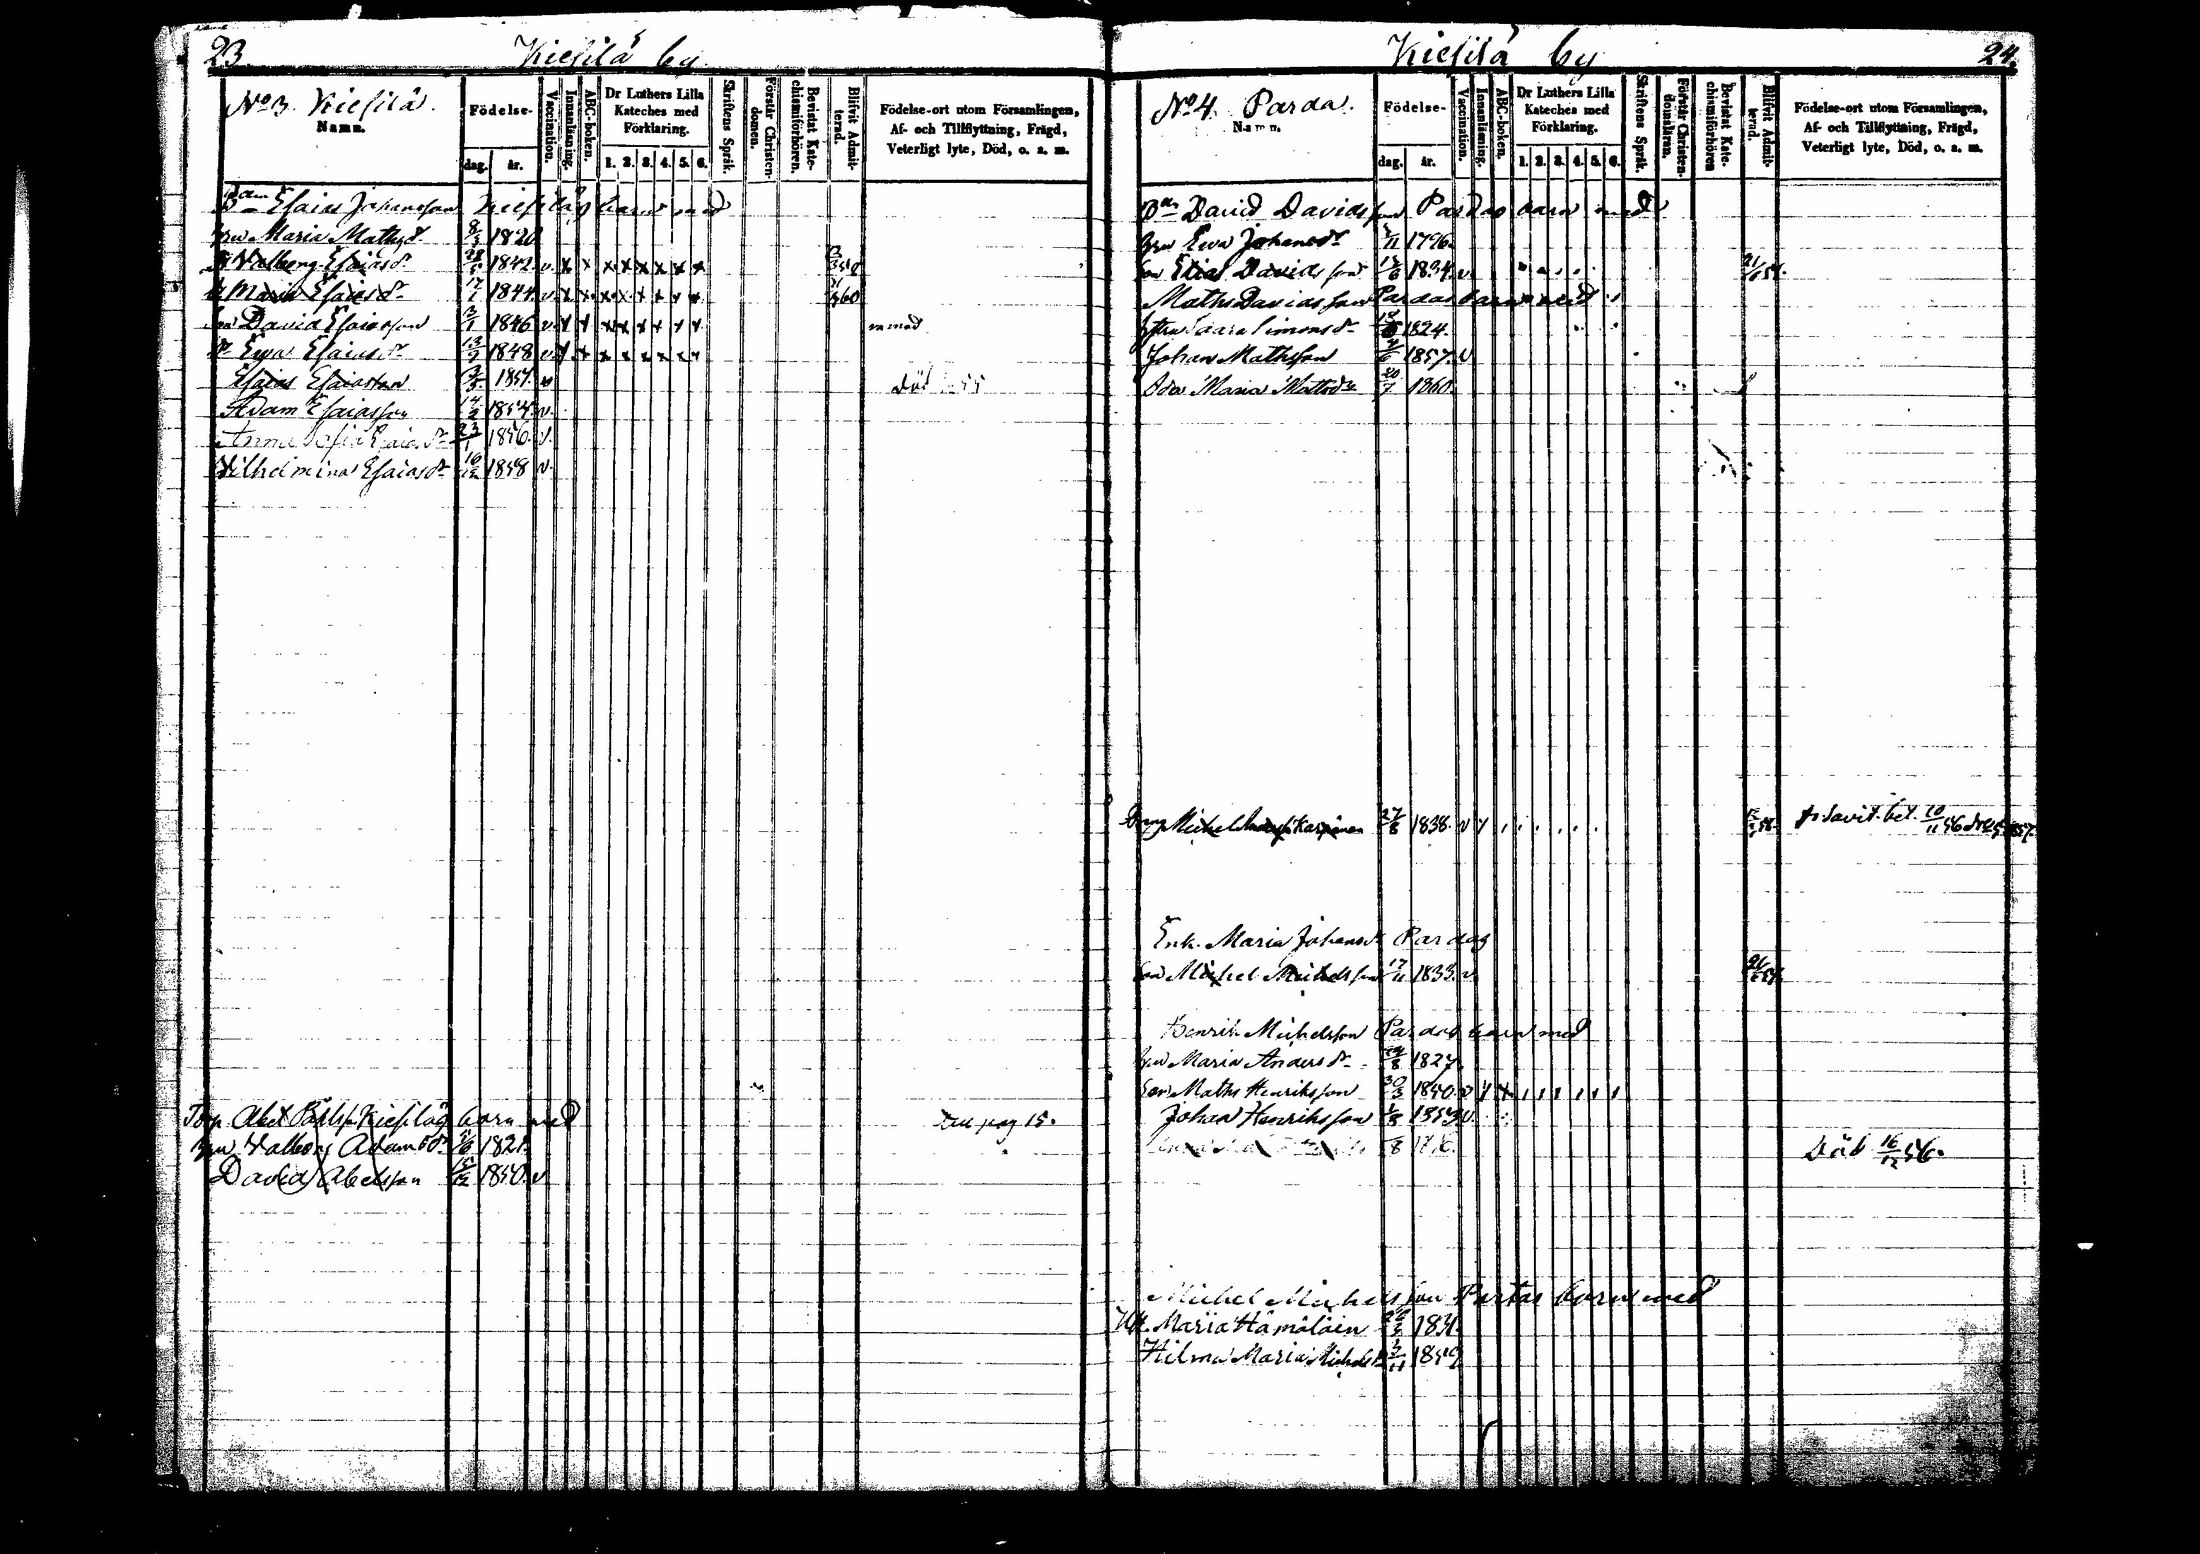 23. Kiesilä by
No 3. Kiesilä.
Namn.
Födelse-
dag. år.
Vaccination.
Innanläsning.
ABC-boken.
Dr Luthers Lilla
Kateches med
Förklaring.
1. 2. 3. 4. 5. 6.
Skriftens Språk.
Förstår Christen-
domen.
Bevistat Kate-
chismiförhören.
Blifvit Admit-
terad.
Födelse-ort utom Församlingen,
Af- och Tillflyttning, Frägd,
Veterligt lyte, Död, o. s. m.
Esaias Johansson Kiesiläs barn med
hru Maria Mathsdr 8/3 1820
Valborg Esaiasdr 1842 v. x x x x x x x x
Maria Esaiasdr 17/1 1844 v. x x x x x x x x
son David Esaiasson 3/1 1846 v. x x x x x x x x
dr Ewa Esaiasdr 1848 v. x x x x x x x x
Esaias Esaiasson 1851. v Död
Adam Esaiasson 14/2 1854 v.
Anna Sofia Esaiasdr 23/1 1856 v.
Wilhelmina Esaiasdr 16/12 1858 v.
Torp. Abel Pålss. Kiesiläs barn med pag 15.
hru Valborg Adamsdr 1821.
David Abelsson 1850. v
Kiesilä by 24.
No 4. Parda.
Namn.
Födelse-
dag. år.
Vaccination.
Innanläsning.
ABC-boken.
Dr Luthers Lilla
Kateches med
Förklaring.
1. 2. 3. 4. 5. 6.
Skriftens Språk.
Förstår Christen-
domsläran.
Bevistat Kate-
chismiförhören
Blifvit Admit-
terad.
Födelse-ort utom Församlingen,
Af- och Tillflyttning, Frägd,
Veterligt lyte, Död, o. s. m.
David Davidsson Pardas barn med
hru Ewa Johansdr 1796.
son Elias Davidsson 1834. v.
Maths Davidsson Pardas barn med
hstru Saara Simonsdr 1824.
Johan Mathsson 1857. v
Ida Maria Mattsdr 20/7 1860.
Dreng Michel Karppinen 27/8 1838. v
Enk. Maria Johansdr Pardas
son Michel Michelsson 17/11 1833. v.
Henrik Michelsson Pardas barn med
hru Maria Andersdr 1827.
Son Maths Henriksson 30/3 1850. v
Johan Henriksson 1853 v.
Död 16/12 56.
Michel Michelsson Partas barn med
Hst. Maria Hämäläin 1831.
Hilma Maria Michelsdr 3/11 1859